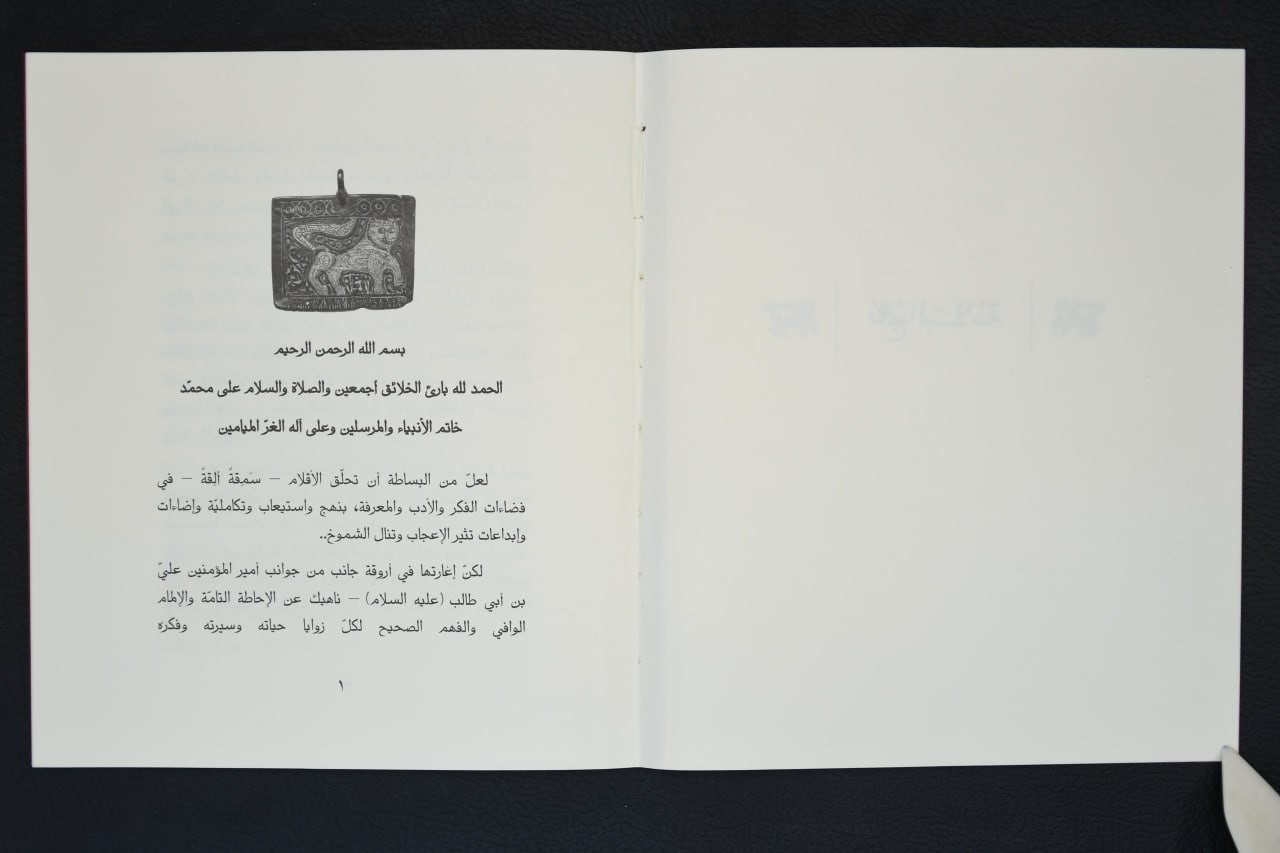 بسم الله الرحمن الرحيم
الحمد لله بارئ الخلائق أجمعين والصلاة والسلام على محمّد
خاتم الأنبياء والمرسلين وعلى آله الغرّ الميامين
لعلّ من البساطة أن تحلّق الأقلام – سَمِقةً ألِقةً – في
فضاءات الفكر والأدب والمعرفة، بنهج واستيعاب وتكامليّة وإضاءات
وإبداعات تثير الإعجاب وتنال الشموخ..
لكنّ إغارتها في أروقة جانب من جوانب أمير المؤمنين عليّ
بن أبي طالب (عليه السلام) – ناهيك عن الإحاطة التامّة والإلمام
الوافي والفهم الصحيح لكلّ زوايا حياته وسيرته وفكره
١